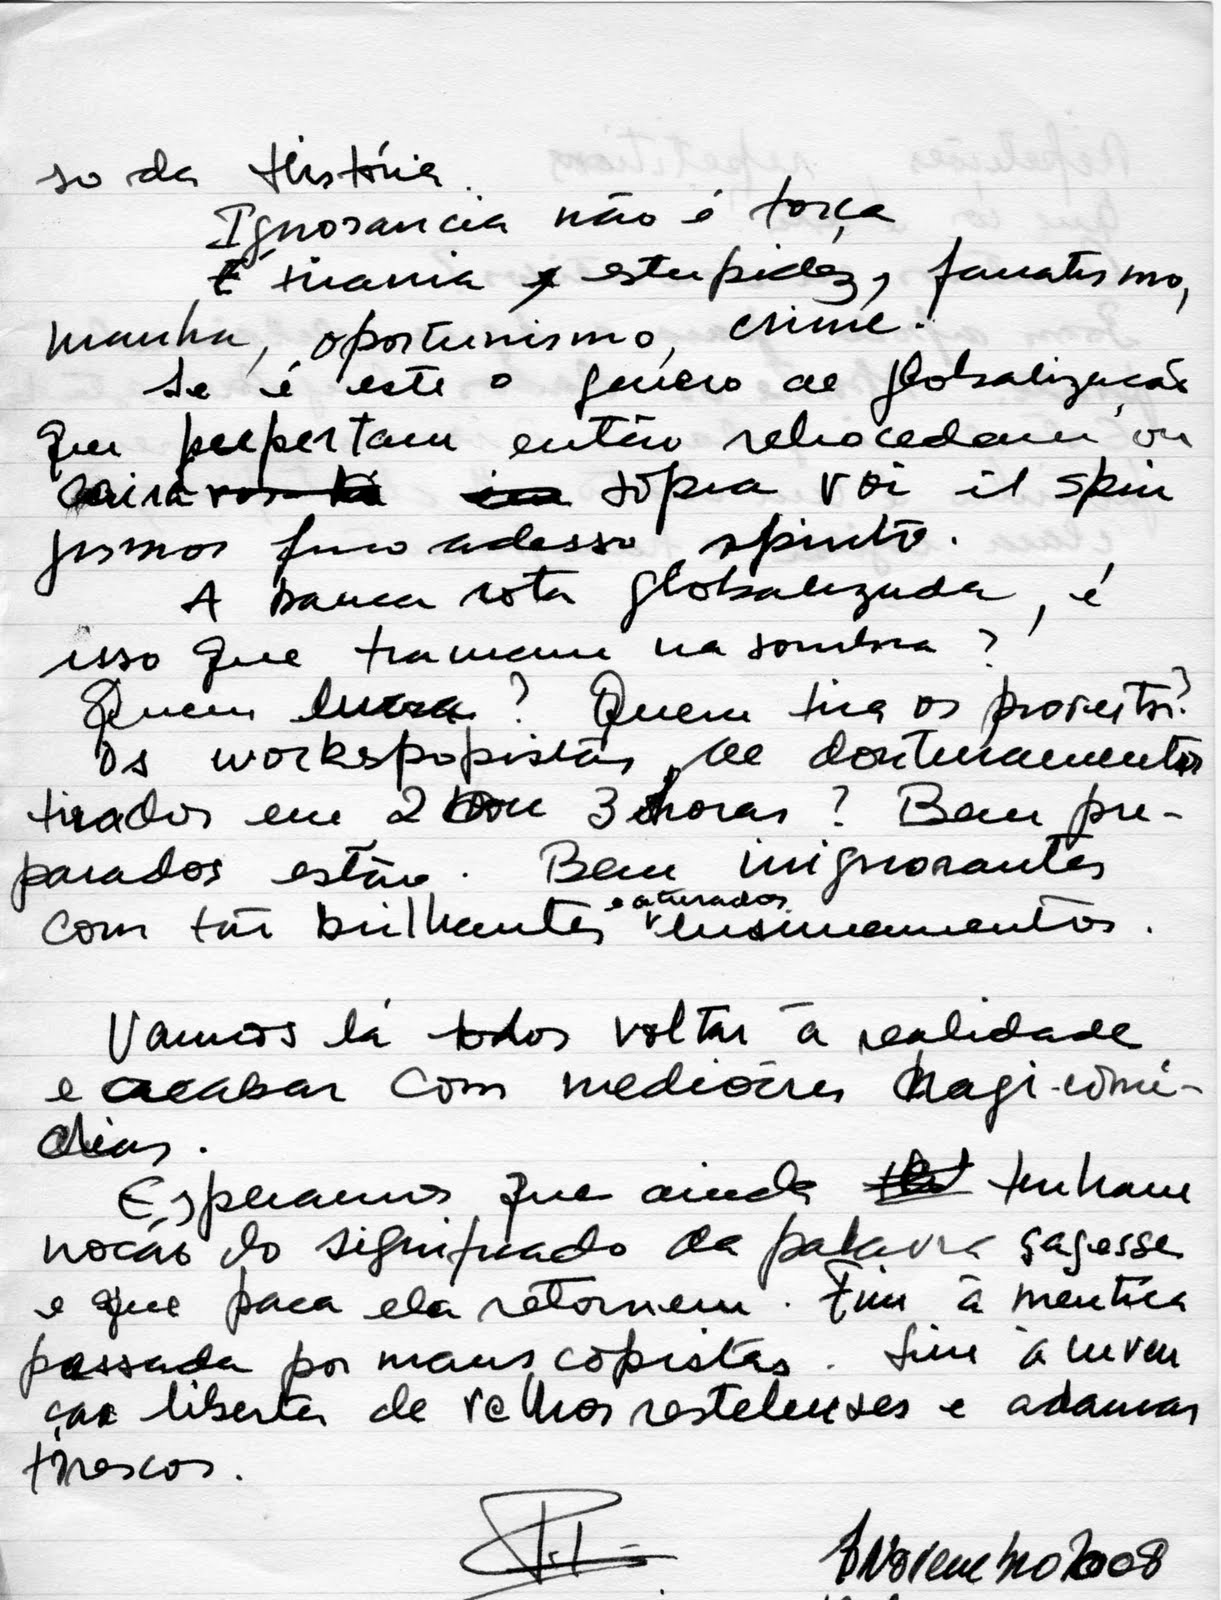 so da História.
Ignorancia não é força
É tirania, estupidêz, fanatismo,
manha, oportunismo, crime.
Se é este o género de globalização
que pretam então retrocedam ou
sopra voi il spin
fino adesso spinto.
A banca rota globalizada, é
isso que tramam na sombra?
Quem lucra? Quem tira os proveitos?
Os workspopistas de doutoramentos
tirados em 2 ou 3 horas? Bem pre-
parados estão. Bem inignorantes
com tão brilhantes e aturados ensinamentos.
Vamos lá todos voltar à realidade
e acabar com mediocres tragi-comé-
dias.
Esperamos que ainda tenham
noção do significado da palavra sagesse
e que para ela retornem. Fim à mentira
passada por maus copistas. Sim à inven
ção liberta de velhos restelenses e adamas
trescos.
Novembro 2008